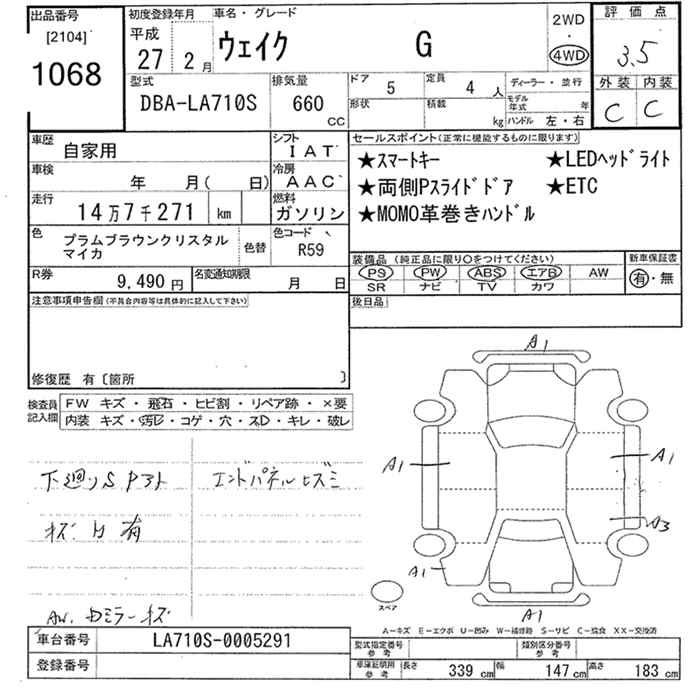 出品番号
[2104]
1068
初度登録年月
平成
27 2月
車名・グレード
ウェイク G
2WD
・
4WD
評価点
3.5
外装 内装
C C
型式
DBA-LA710S
排気量
660
CC
ドア
5
定員
4 人
形状
積載
kg
ディーラー・並行
モデル年式 年
ハンドル 左・右
車歴
自家用
シフト
IAT
車検
年 月( 日)
冷房
AAC
走行
14万7千271 km
燃料
ガソリン
色
プラムブラウンクリスタル
マイカ
色替
色コード
R59
R券
9,490円
名変通知期限
月 日
セールスポイント(正常に機能するものに限ります)
★スマートキー ★LEDヘッドライト
★両側Pスライドドア ★ETC
★MOMO革巻きハンドル
装備品 (純正品に限り○をつけてください)
PS PW ABS エアB AW
SR ナビ TV カワ
新車保証書
有・無
後日品
注意事項申告欄(不具合内容等は具体的に記入して下さい)
修復歴 有〔箇所 〕
検査員
記入欄
FW キズ・飛石・ヒビ割・リペア跡・×要
内装 キズ・汚レ・コゲ・穴・スレ・キレ・破レ
下廻りS
キズ 有
エンドパネルヒズミ
AW. ミラーキズ
A1
A1
A1
A3
A1
A1
スペア
A-キズ E-エクボ U-凹み W-補修跡 S-サビ C-腐食 XX-交換済
車台番号
LA710S-0005291
登録番号
型式指定番号
参考
類別区分番号
参考
車庫証明用
参考
長さ 339 cm 幅 147 cm 高さ 183 cm